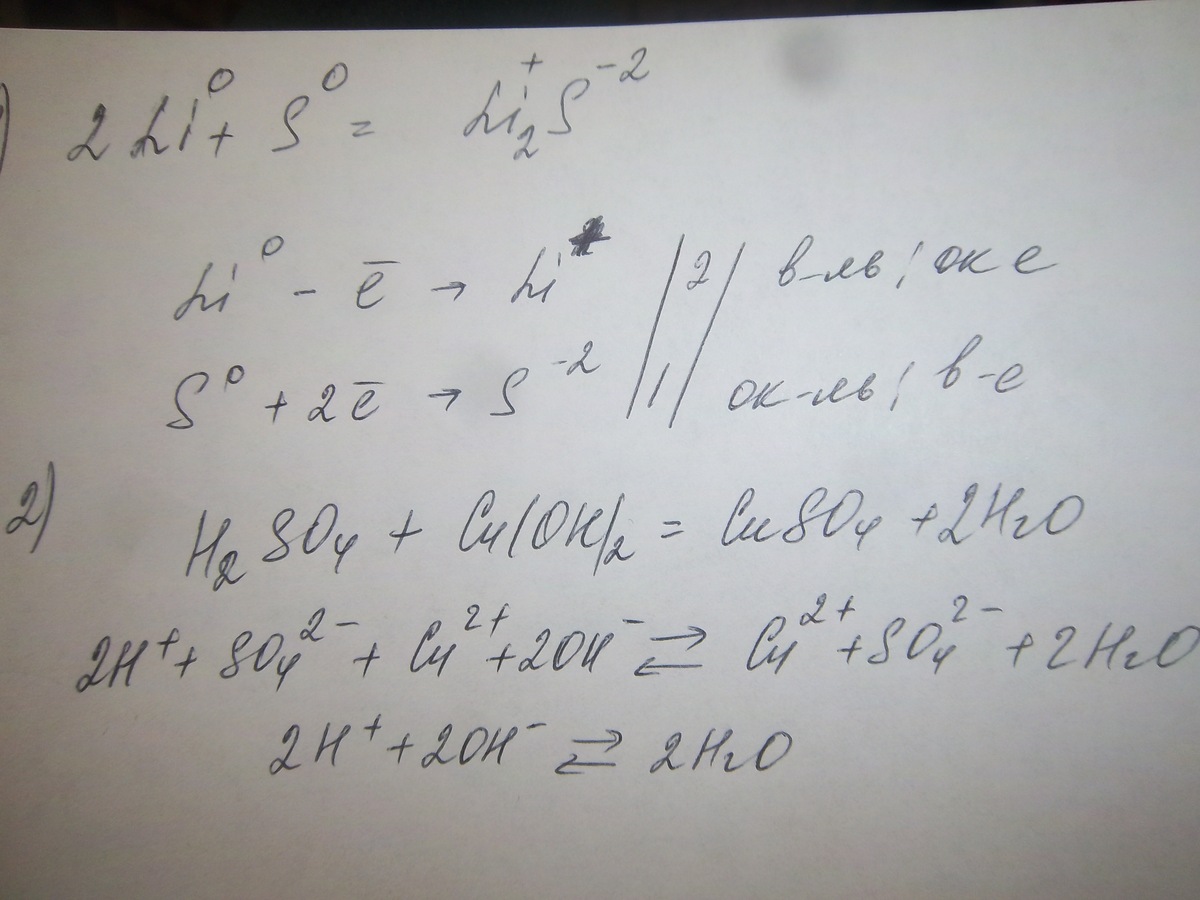 ) 2Li⁰ + S⁰ = Li₂⁺S⁻²
Li⁰ - ē → Li⁺ || 2 | в-ль; ок е
S⁰ + 2ē → S⁻² || 1 | ок-ль; в-е
2) H₂SO₄ + Cu(OH)₂ = CuSO₄ + 2H₂O
2H⁺ + SO₄²⁻ + Cu²⁺ + 2OH⁻ ⇄ Cu²⁺ + SO₄²⁻ + 2H₂O
2H⁺ + 2OH⁻ ⇄ 2H₂O